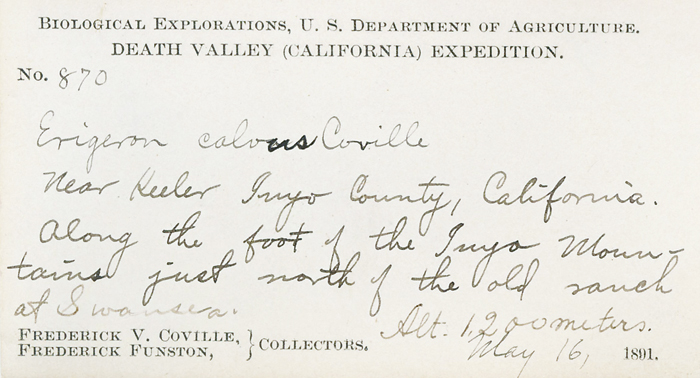 BIOLOGICAL EXPLORATIONS, U. S. DEPARTMENT OF AGRICULTURE.
DEATH VALLEY (CALIFORNIA) EXPEDITION.
No. 870
Erigeron calvus Coville
Near Keeler Inyo County, California.
Along the foot of the Inyo Moun-
tains just north of the old ranch
at Swansea.
Alt. 1,200 meters.
FREDERICK V. COVILLE,
FREDERICK FUNSTON, } COLLECTORS.
May 16, 1891.